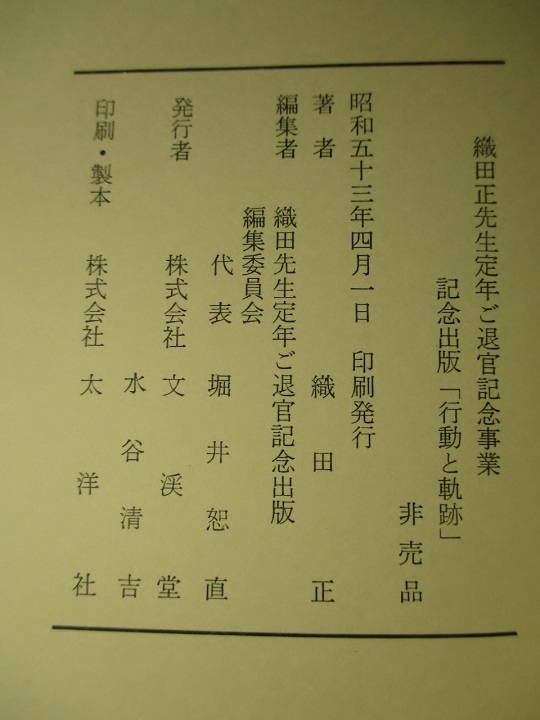 織田正先生定年ご退官記念事業
記念出版「行動と軌跡」
非売品
昭和五十三年四月一日 印刷発行
著者 織田正
編集者 織田先生定年ご退官記念出版
編集委員会
代表 堀井恕直
発行者 株式会社 文渓堂
水谷清吉
印刷・製本 株式会社 太洋社